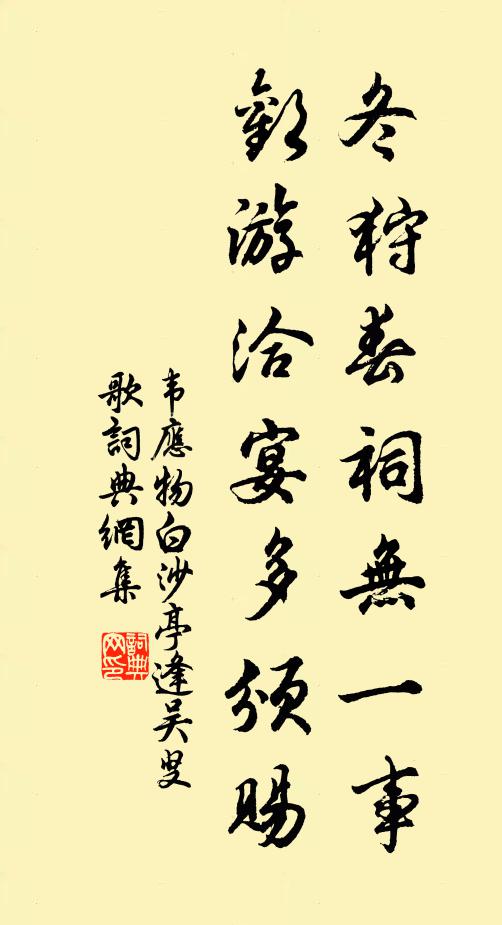 冬狩春祠無一事
歡游洽宴多頒賜
韦應物白沙亭逢吴叟
歌詞典網集
詞典网印